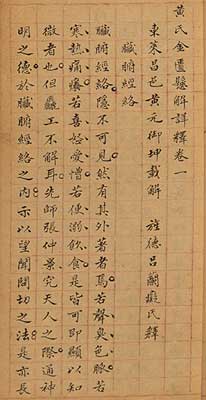 黄氏金匱懸解詳釋卷一
東萊昌邑黃元御坤載解　旌德呂嗣癡民釋
臟腑經絡
臟腑經絡隱不可見然有其外著者焉若聲臭色脈若
寒熱痛癢若喜怒愛憎若便溺飲食是皆可即顯以知
微者也但麤工不解耳先師張仲景究天人之際通神
明之德於臟腑經絡之內示以望聞問切之法是亦長